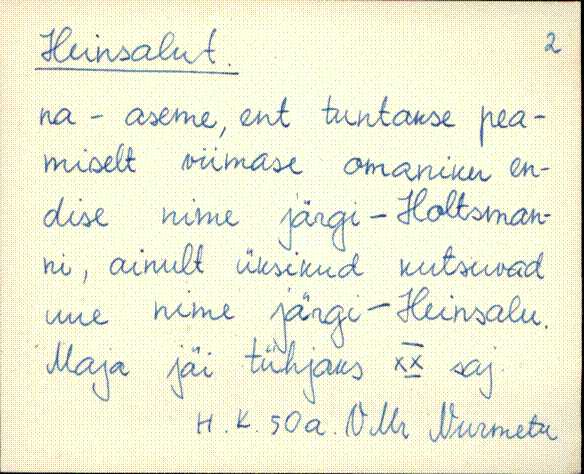 Heinsalut. 2
na - aseme, ent tuntakse pea-
miselt viimase omaniku en-
dise nime järgi - Holtsman-
ni, ainult üksikud kutsuvad
uue nime järgi - Heinsalu.
Maja jäi tühjaks XX saj.
H. K. 50a. VMr Nurmetu